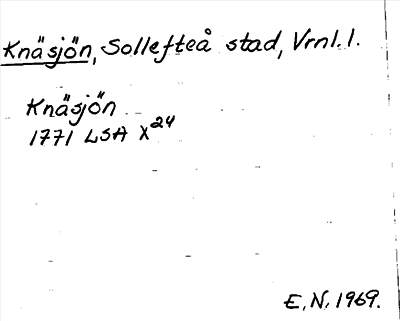 Knäsjön, Sollefteå stad, Vrnl. l.
Knäsjön
1771 LSA X24
E.N. 1969.